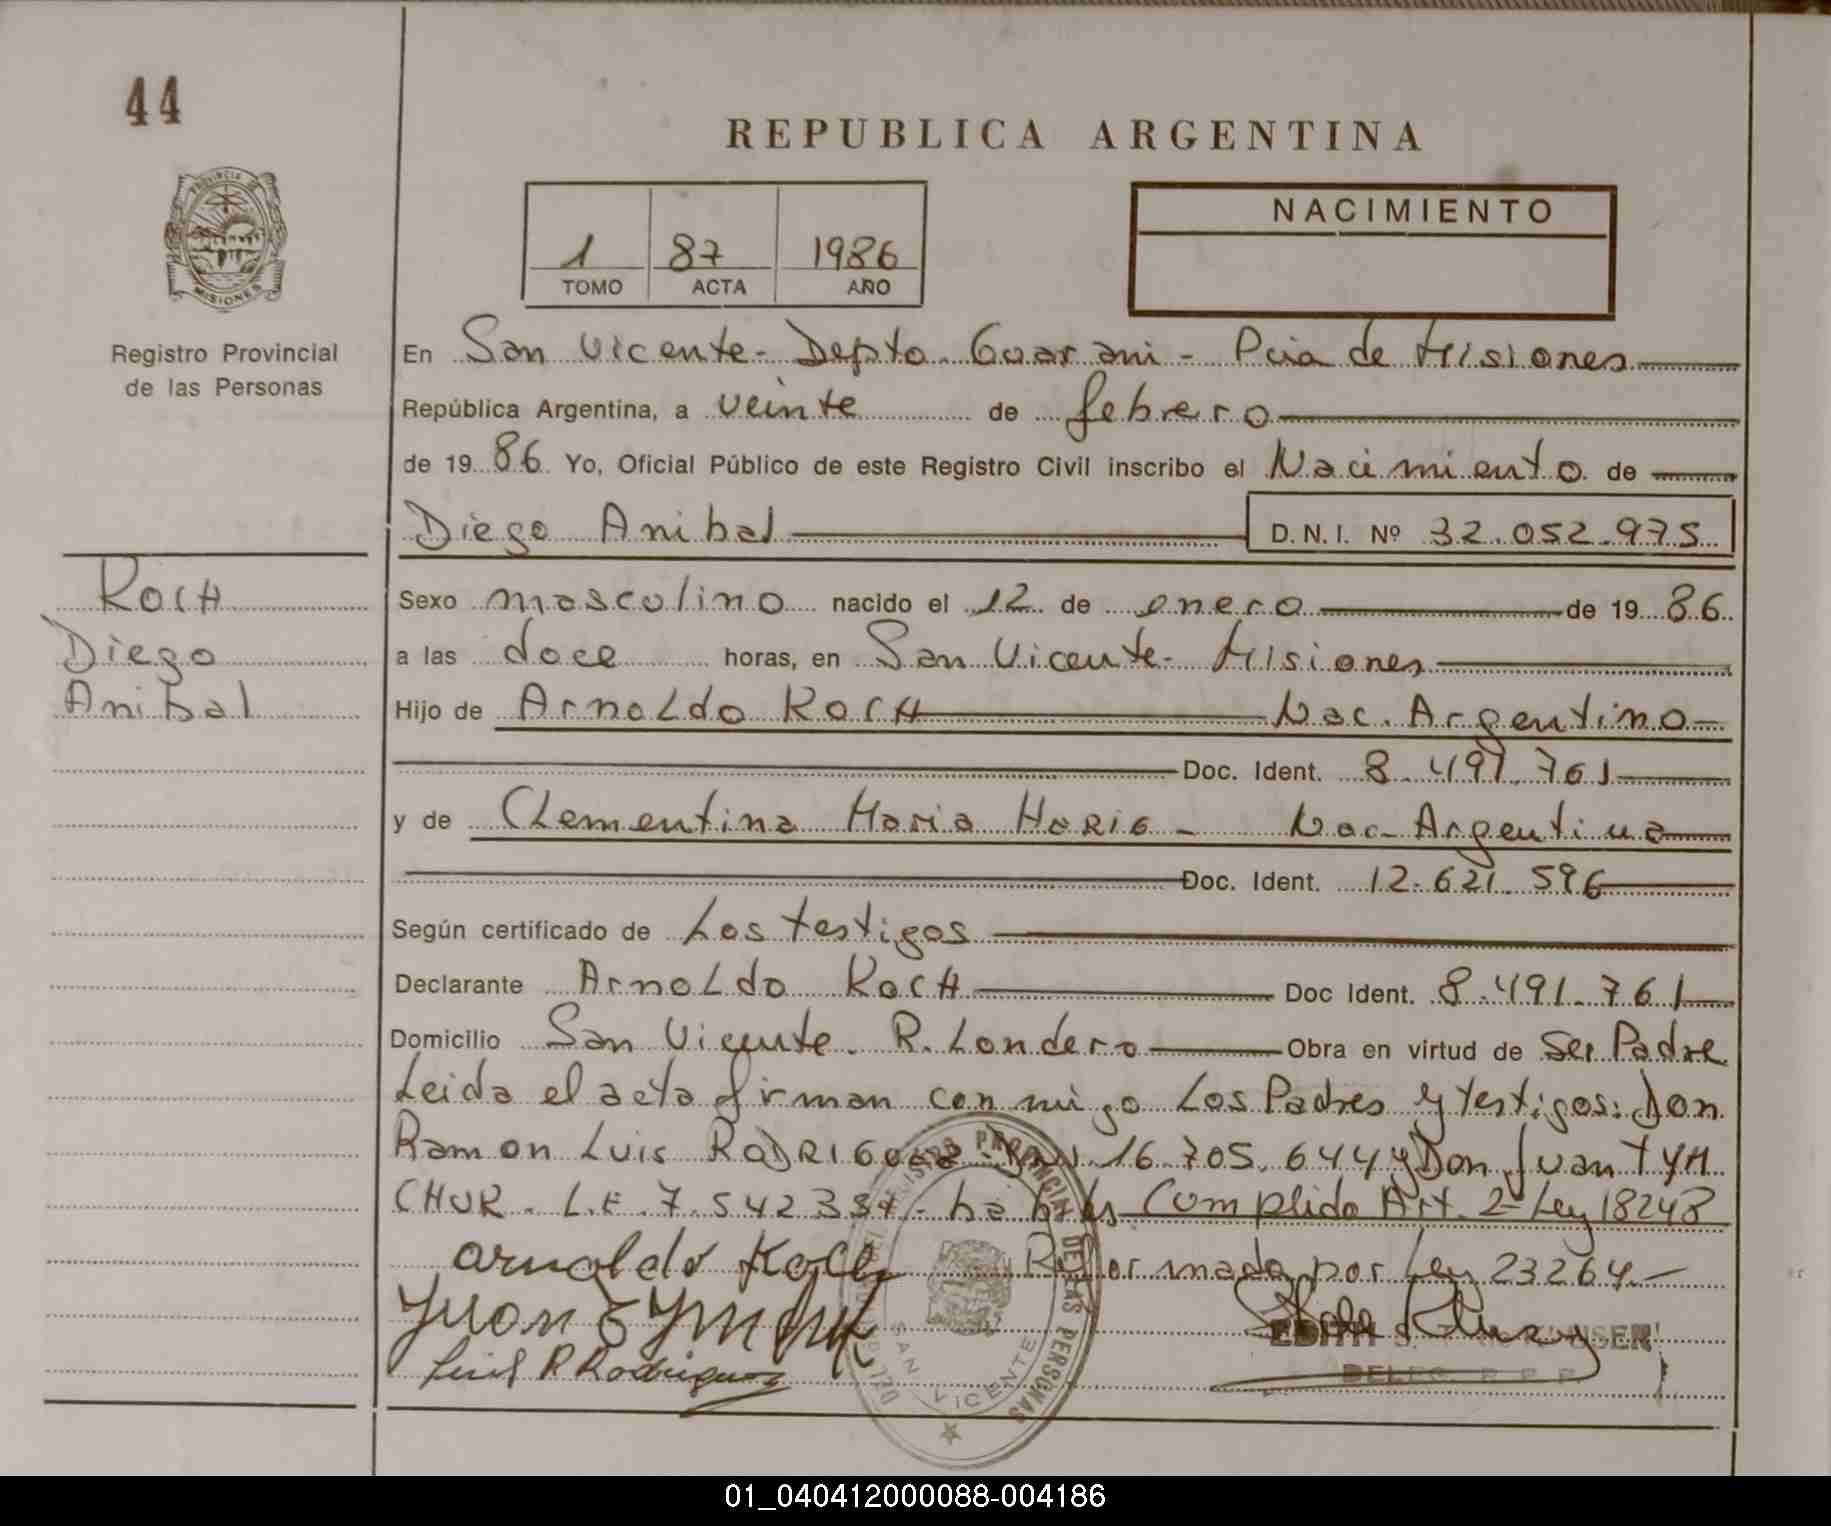 44
REPUBLICA ARGENTINA
PROVINCIA DE
MISIONES
1 87 1986
TOMO ACTA AÑO
NACIMIENTO
Registro Provincial
de las Personas
En San Vicente - Depto. Guarani - Pcia de Misiones
República Argentina, a veinte de febrero
de 1986. Yo, Oficial Público de este Registro Civil inscribo el Nacimiento de
Diego Anibal D.N.I. Nº 32.052.975
KOCH
Diego
Anibal
Sexo masculino nacido el 12 de enero de 1986.
a las doce horas, en San Vicente - Misiones
Hijo de Arnoldo KOCH Nac. Argentino
Doc. Ident. 8.491.761
y de Clementina Maria Nac. Argentina
Doc. Ident. 12.621.596
Según certificado de Los testigos
Declarante Arnoldo KOCH Doc Ident. 8.491.761
Domicilio San Vicente. R. Londero Obra en virtud de Ser Padre
Leida el acta firman conmigo Los Padres y testigos: Don
Ramon Luis RODRIGUEZ 16.705.644 y Don Juan TYM
CHUR - L.E. 7.542.334 - Cumplido Art. 2- Ley 18248
Reformada por Ley 23264.-
Arnoldo Koch
Juan Tymchur
Luis R Rodriguez
REGISTRO PROVINCIAL DE LAS PERSONAS
SAN VICENTE
EDITH S.
01_040412000088-004186